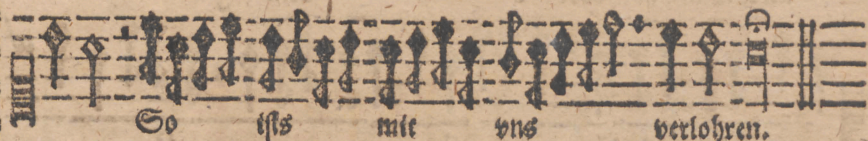 So ists mit vns verlohren.